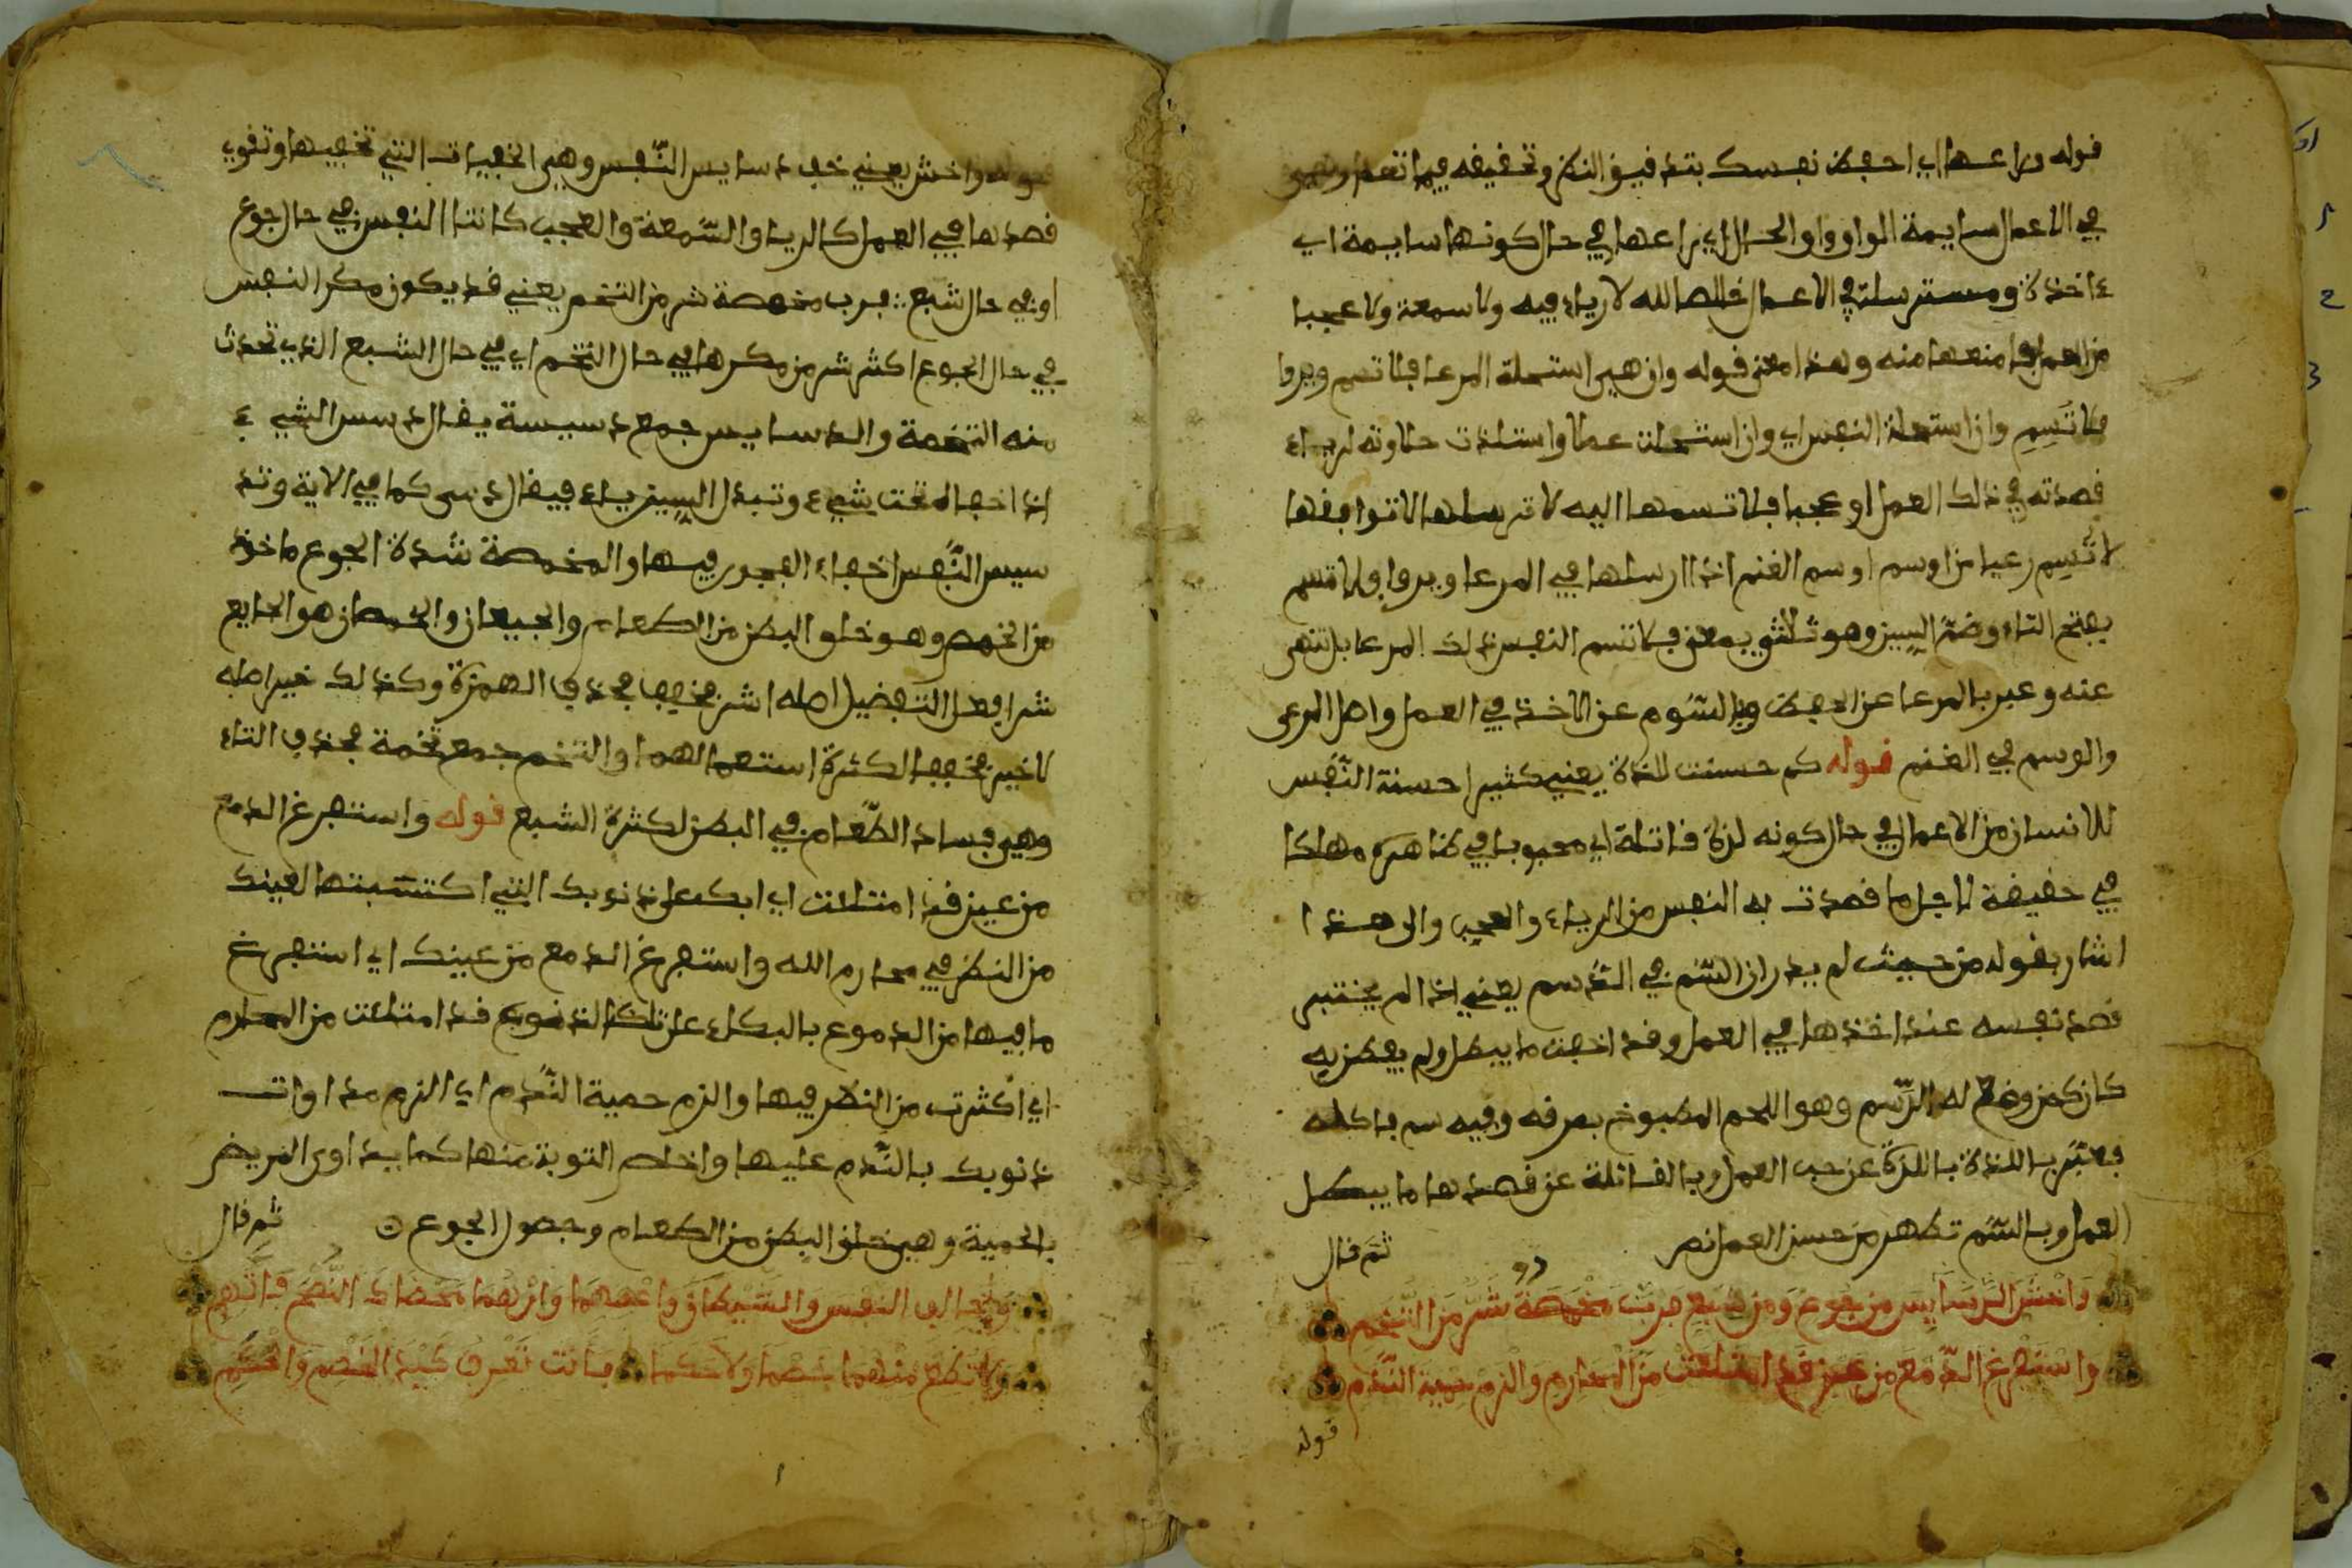 قوله وراعها اي احفظ نفسك بتدقيق النظر وتحقيقه فيما تقدم وهي
في الاعمال سايمة الواو واو الحال اي راعها في حال كونها سايمة اي
ءاخذة ومسترسلة في الاعمال خالصا لله لا رياء فيه ولا سمعة ولا عجبا
من العمل فامنعها منه وهذا معنى قوله وان هي استحلة المرعا فلا تسم ويروا
فلا تَسِمِ وان استحلة النفس اي وان استحلت عملا واستلذت حلاوته لرياء
قصدته في ذلك العمل او عجبا فلا تسمها اليه لا ترسلها لا توافقها
لا تُسِمِ رعيا من اوسم اوسم الغنم اذا ارسلها في المرعا ويروا ولا تسم
بفتح التاء وضمّ السين وهو ثلاثي بمعنى فلا تسم النفس ذلك المرعا بل تنهى
عنه وعبر بالمرعا عن الحفظ وبالسَّوم عن الاخذ في العمل واصل المرعى
والوسم في الغنم قوله كم حسنت لذة يعني كثيرا حسنة النَّفس
للانسان من الاعمال في حال كونه لذة قاتلة اي محبوبا في ظاهره مهلكا
في حقيقة لاجل ما قصدت به النفس من الرياء والعجب والى هذا
اشار بقوله من حيث لم يدر ان السّم في الدَّسم يعني اذا لم يختبر
قصد نفسه عند اخذها في العمل وقد اخفت ما يبطل ولم يفطن به
كان كمن وضع له الدّسم وهو اللحم المطبوخ بمرقه وفيه سم فاكله
فعبّر باللذة باللذة عن حب العمل وبالقاتلة عن قصدها ما يبطل
العمل وبالسّم تظهر من حسن العمل نص ثم قال
وَاخْشَ الدَّسَايِسَ من جوع وَمن شبع فربّ مخمصة شَرٌّ مِنَ التُّخَمِ
واسْتَفْرِغ الدَّمْعَ من عين قَدِ امتلأت مِنَ المحارم والزم حمية النَّدَمِ
قوله
قوله واخش يعني خف دسايس النّفس وهي الخفيات التي تخفيها وتقوي
قصدها في العمل كالرياء والسّمعة والعجب كانتا النفس في حال جوع
او في حال شبع فرب مخمصة شر من التخم يعني قد يكون مكر النفس
في حال الجوع اكثر شر من مكرها في حال التخم اي في حال الشبع الذي تحدث
منه التخمة والدسايس جمع دسيسة يقال دسس الشيء
اذا اخفاه تحت شيء وتبدل السين ياء فيقال دسى كما في الاية وتد
سيس النَّفس اخفاء الفجور فيها والمخمصة شدة الجوع ماخوذ
من الخمص وهو خلو البطن من الطعام والجيعان والخمصان هو الجايع
شر افعل التفضيل اصله اشر مخفف بحذف الهمزة وكذلك خير اصله
لاخير مخففا لكثرة استعمالهما والتخم جمع تخمة بحذف التاء
وهي فساد الطّعام في البطن لكثرة الشبع قوله واستفرغ الدمع
من عين قد امتلئت اي ابك على ذنوبك التي اكتسبتها لعينك
من النظر في محارم الله واستفرغ الدمع من عينك اي استفرغ
ما فيها من الدموع بالبكاء على تلك الذنوب قد امتلئت من المحارم
اي اكثرت من النظر فيها والزم حمية النَّدم اي الزم مداوات
ذنوبك بالنَّدم عليها واخلص التوبة منها كما يداوى المريض
بالحمية وهي خلو البطن من الطعام وحصول الجوع ثم قال
وَخَالِفِ النفس والشَّيْطَانَ واعْصِهِمَا وإنْ هُمَا مَحَّضَاكَ النُّصْحَ فَاتَّهِمِ
ولا تطع منهما خصما ولا حكما فانت تعرف كَيْدَ الخصم وَالْحَكَمِ